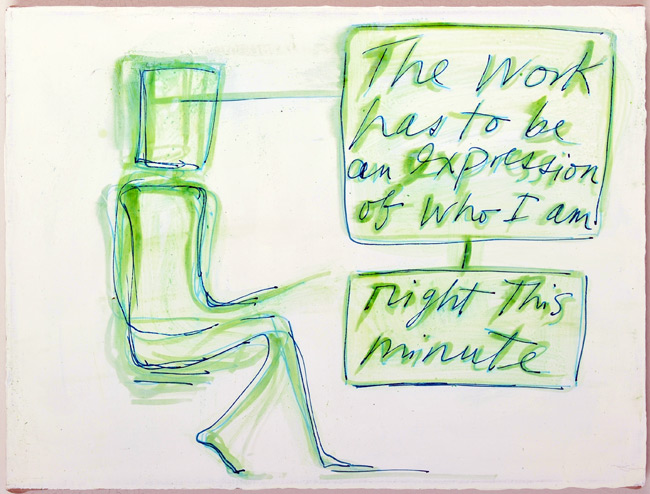 The Work
has to be
an Expression
of Who I am
right This
minute